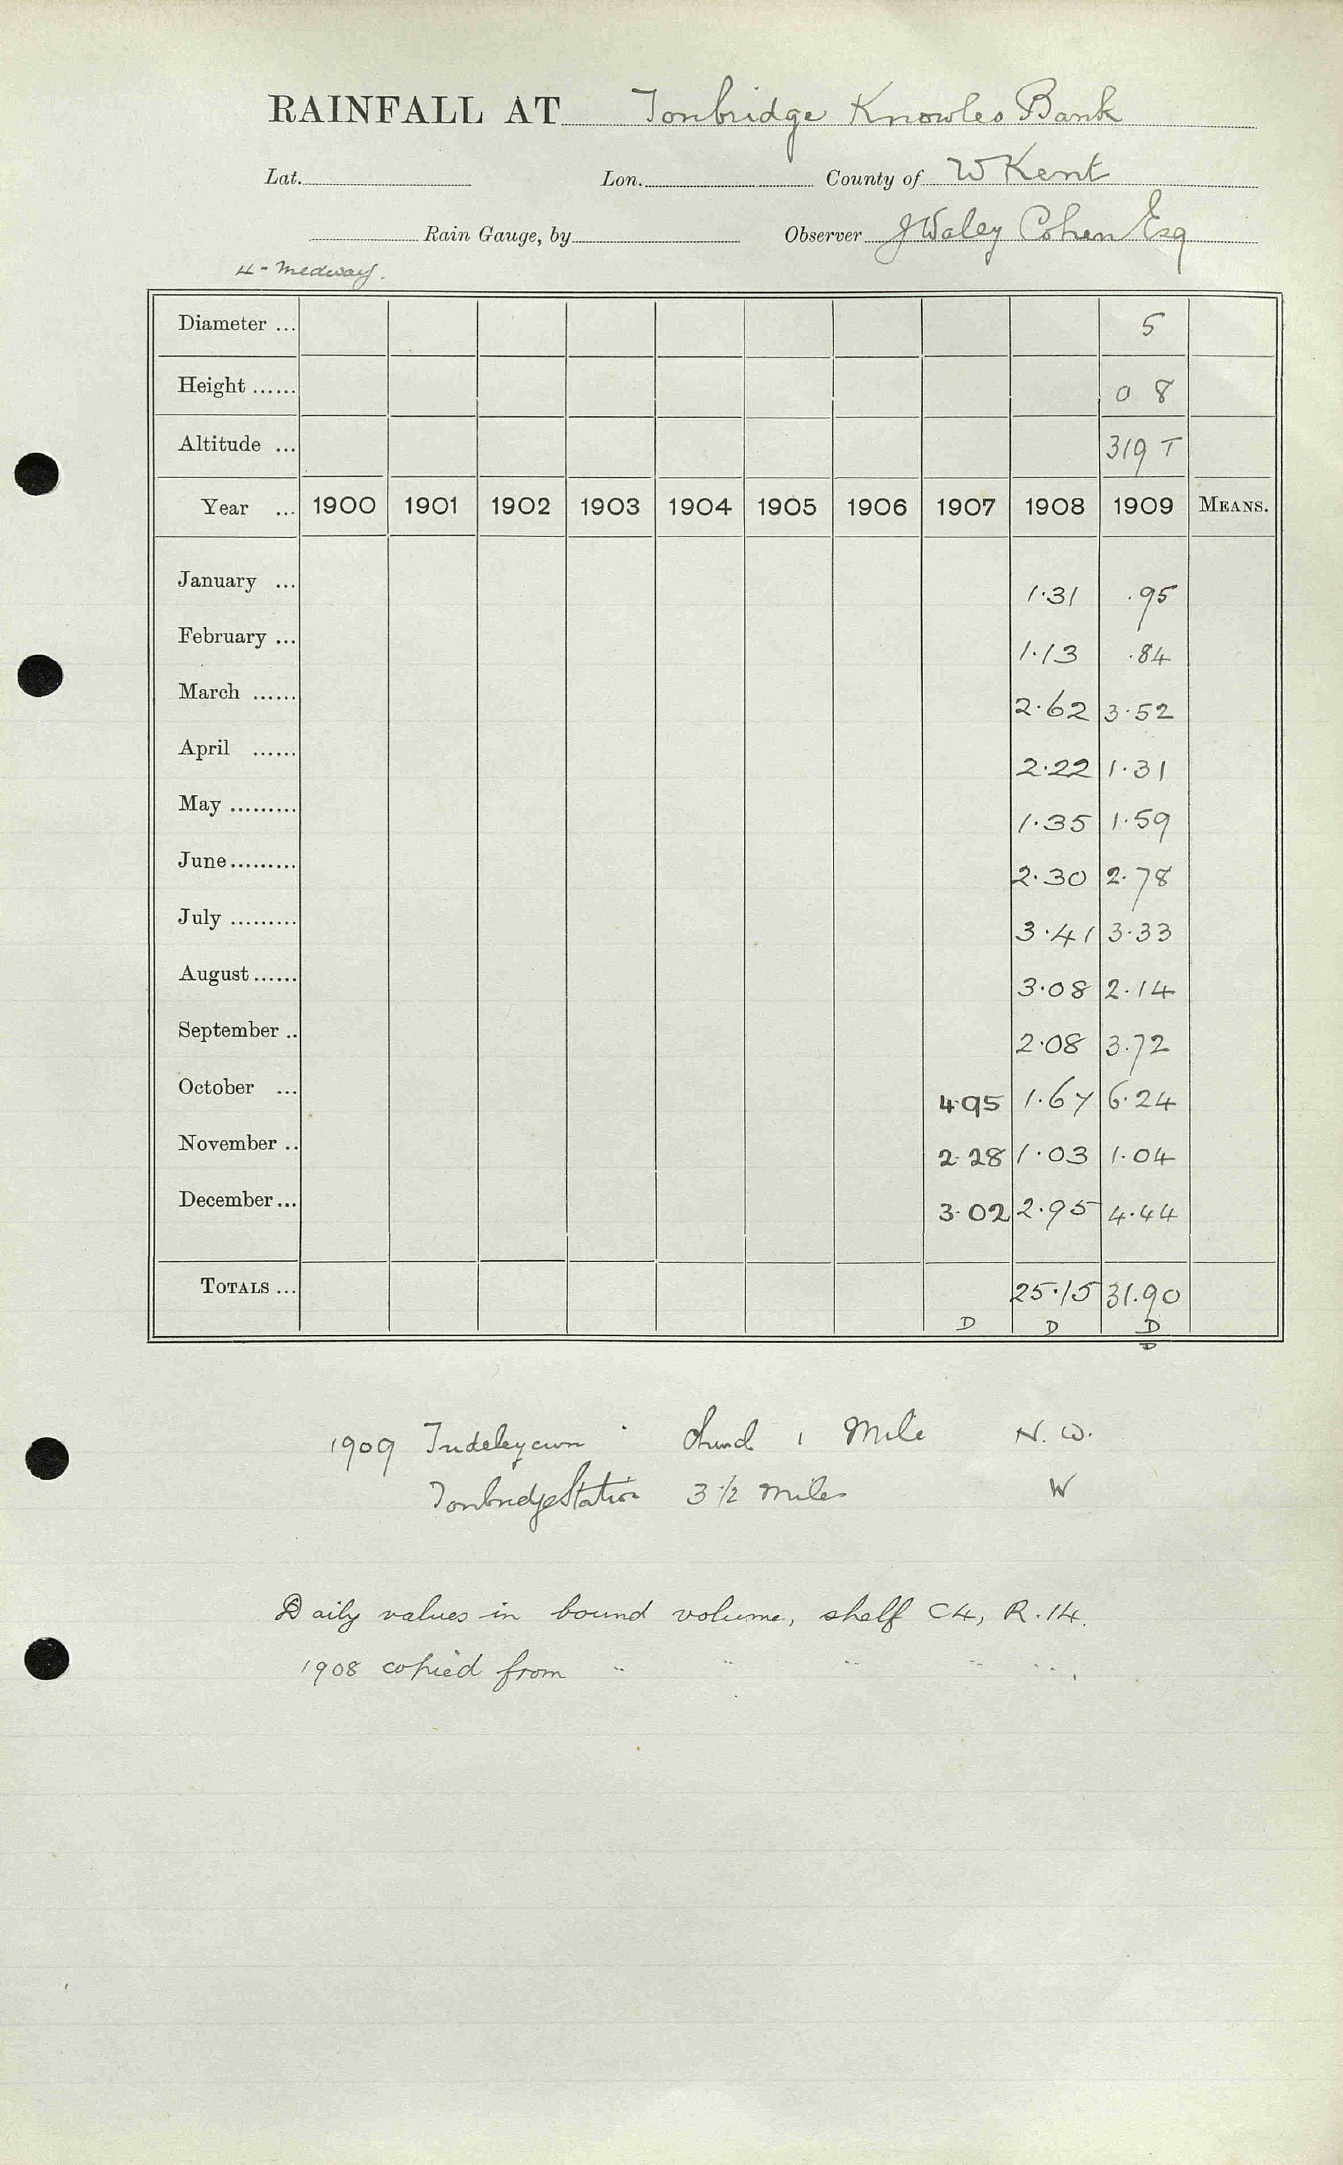 RAINFALL AT Tonbridge Knowles Bank
Lat. Lon. County of W Kent
Rain Gauge, by Observer J Waley Cohen Esq
4 - Medway.
Diameter ... 5
Height ...... 0 8
Altitude ... 319 T
Year ... 1900 1901 1902 1903 1904 1905 1906 1907 1908 1909 MEANS.
January ... 1.31 .95
February ... 1.13 .84
March ...... 2.62 3.52
April ...... 2.22 1.31
May ......... 1.35 1.59
June ......... 2.30 2.78
July ......... 3.41 3.33
August ...... 3.08 2.14
September .. 2.08 3.72
October ... 4.95 1.67 6.24
November .. 2.28 1.03 1.04
December ... 3.02 2.95 4.44
TOTALS ... 25.15 31.90
D D D
D
1909 1 Mile N.W.
Tonbridge Station 3 1/2 miles W
Daily values in bound volume, shelf C4, R.14.
1908 copied from " " " " " .